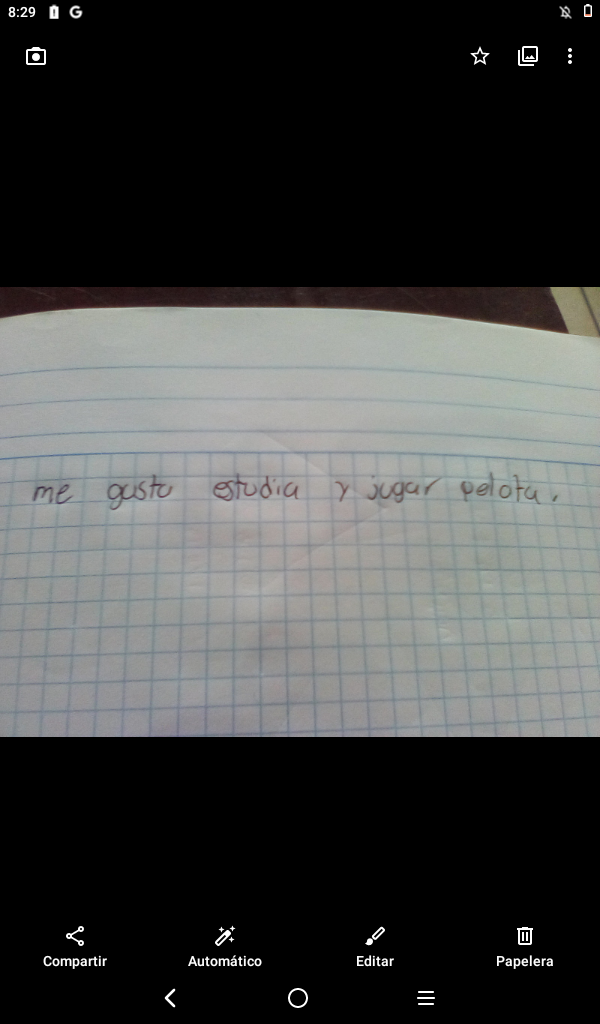 8:29
me gusta estudia y jugar pelota.
Compartir Automático Editar Papelera